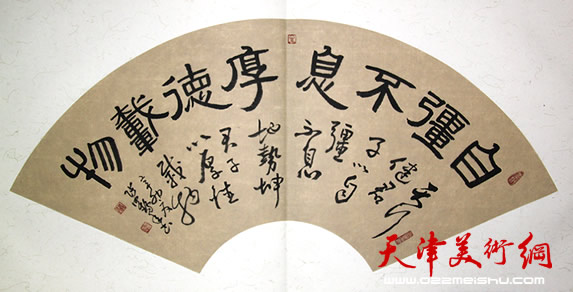 自彊不息厚德載物
天行
健君
子以
自彊
不息
地勢坤
君子
以厚德
載物
天津美術網
www.022meishu.com